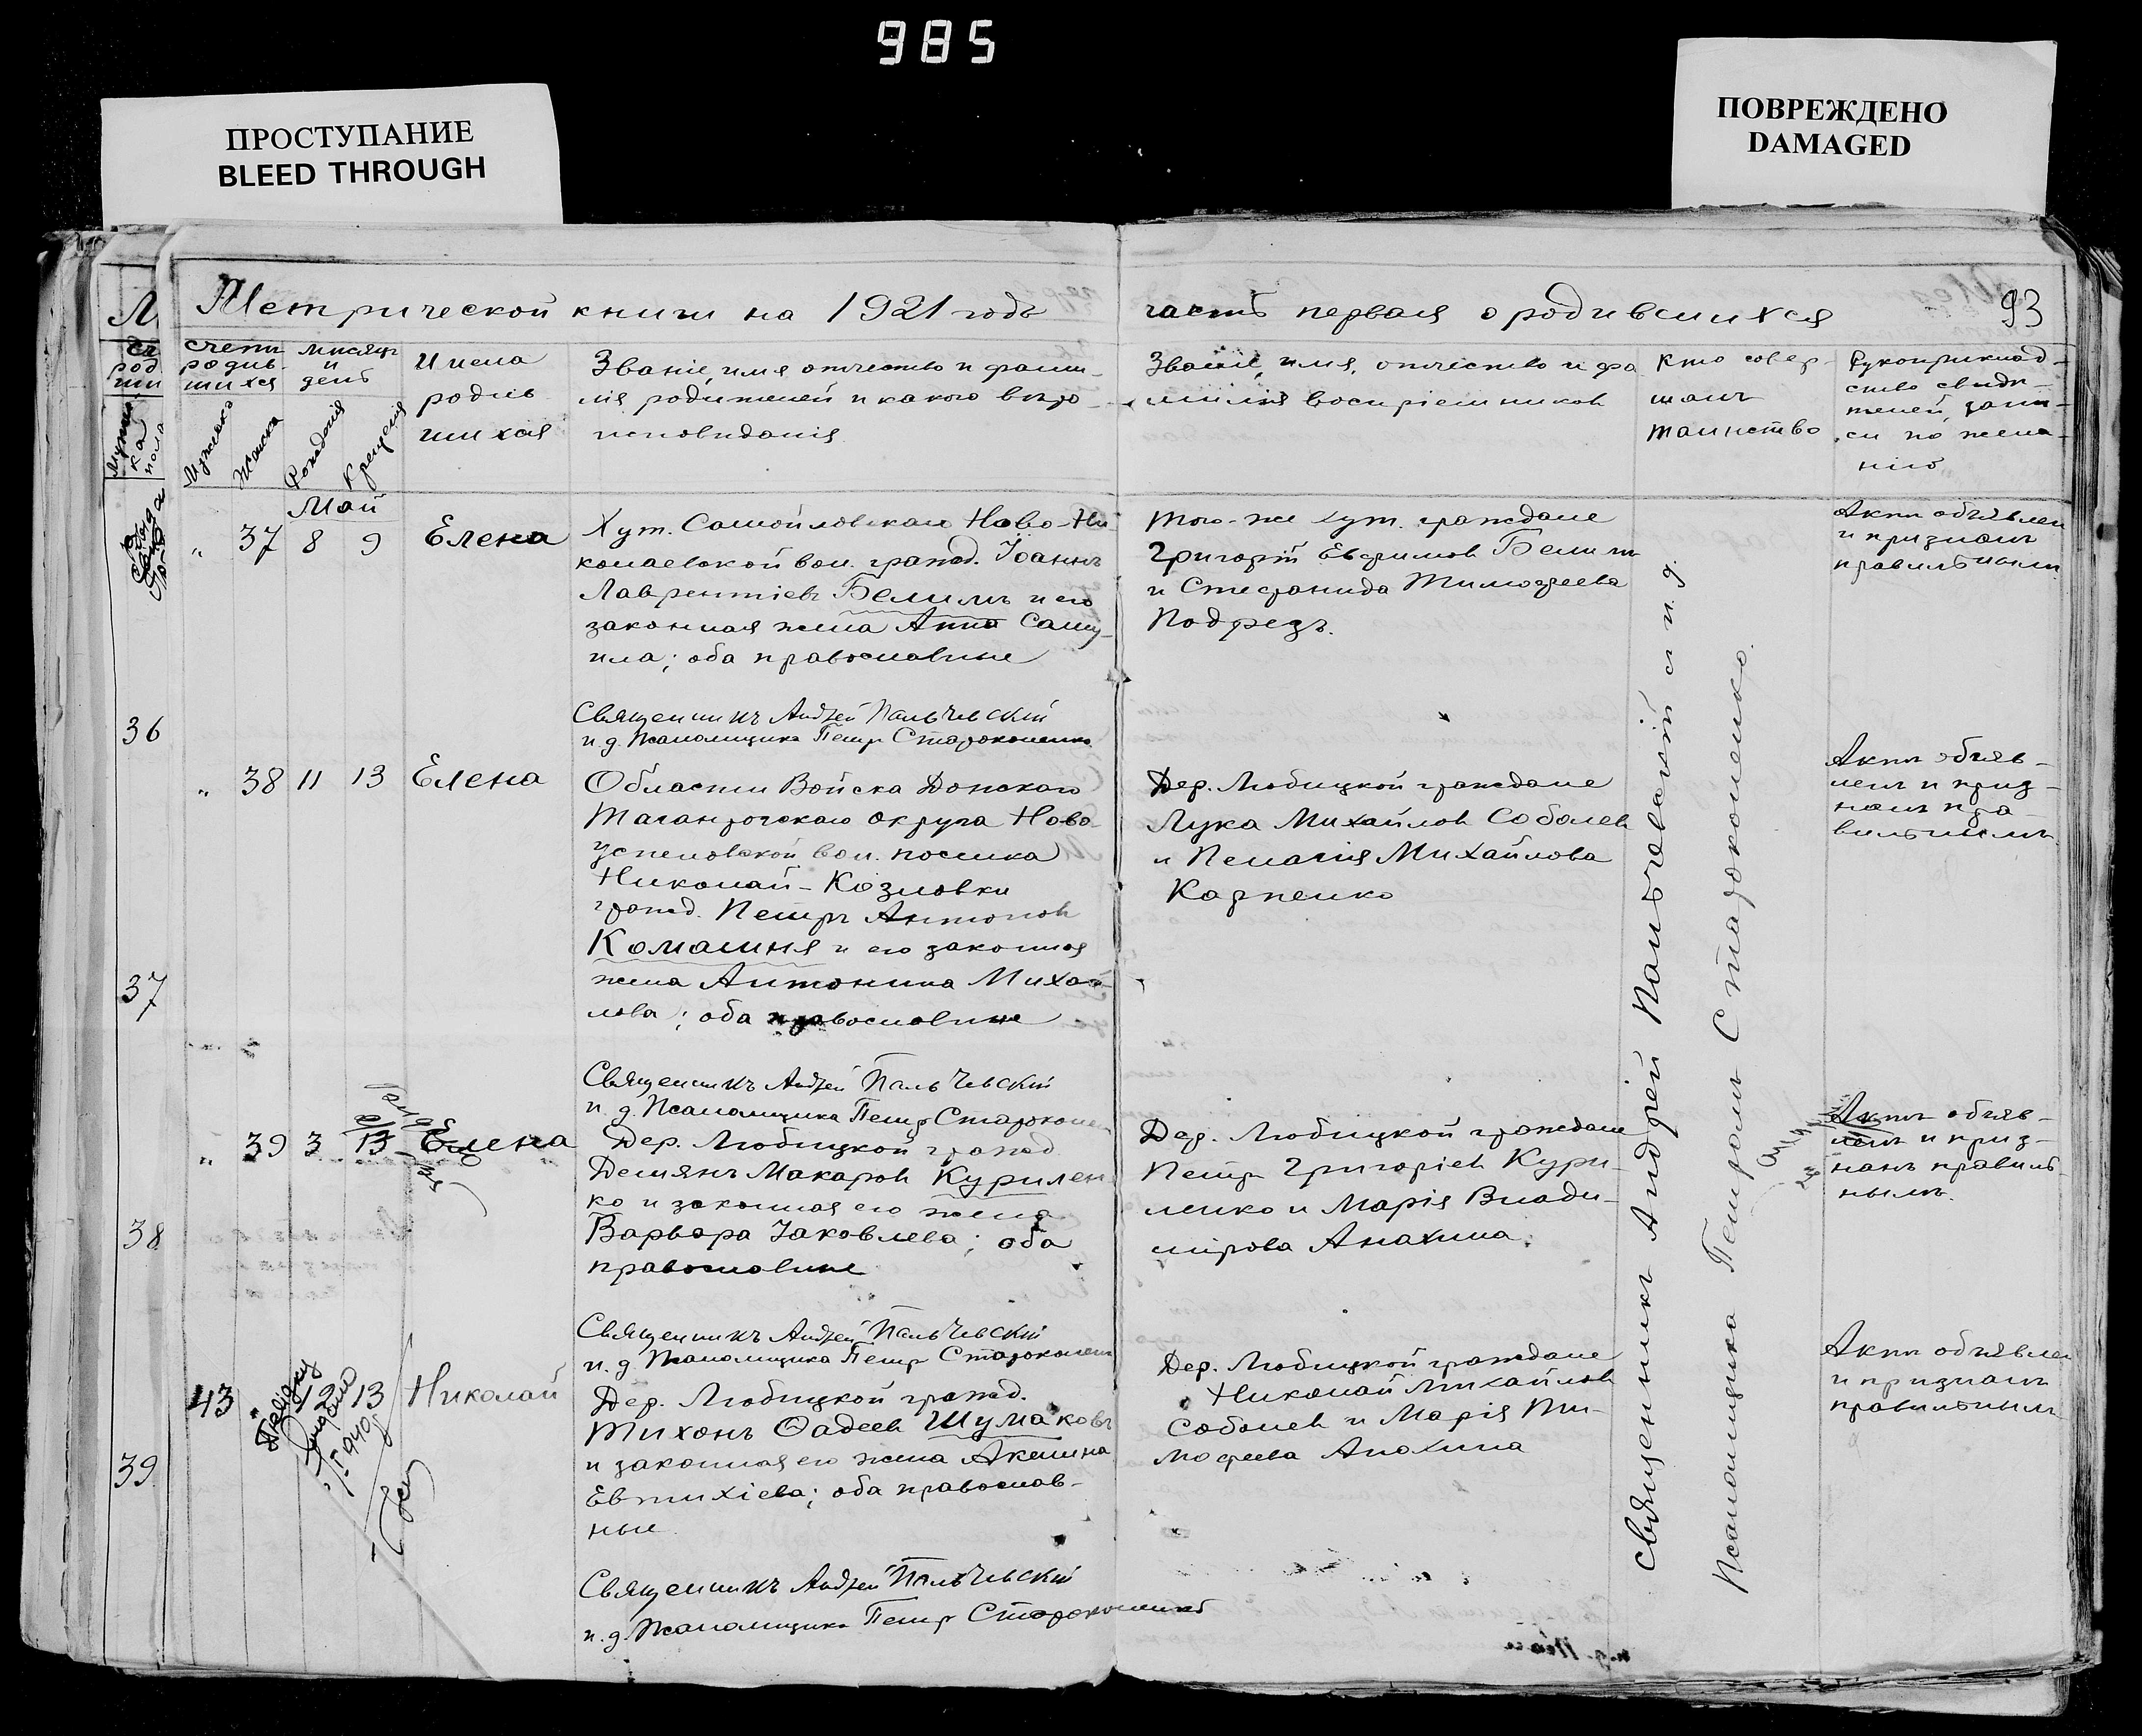 985
ПРОСТУПАНИЕ
BLEED THROUGH
ПОВРЕЖДЕНО
DAMAGED
Метрической книги на 1921 годъ
часть первая о родившихся
93
счетъ родив- шихся
Мужска
Женска
мѣсяцъ и день
Рожденія
Крещенія
Имена
родив
шихся
Званіе, имя отчество и фами-
лія родителей и какого вѣро-
исповѣданія
Званіе, имя, отчество и фа
милія воспріемников
Кто совер-
шалъ
таинство
Рукоприклад-
ство свидѣ-
телей, запи-
си по жела-
нію
Май
„ 37 8 9 Елена
Хут. Самойловскаго Ново-Ни
колаевской вол. гражд. Іоаннъ
Лаврентіевъ Белимъ и его
законная жена Анна Саму-
ила; оба православные
Священникъ Андрей Пальчевскій
и.д. Псаломщика Петр Стороконенко
того-же хут. граждане
Григорій Евфимов Белимъ
и Стефанида Тимофеева
Подрезъ.
Актъ объявлен
и признанъ
правильным
36
„ 38 11 13 Елена
Области Войска Донскаго
Таганрогскаго округа Ново-
успеновской вол. поселка
Николай-Козловки
гражд. Петръ Антонов
Комашня и его законная
жена Антонина Михай-
лова; оба православные
Священникъ Андрей Пальчевскій
и.д. Псаломщика Петр Староконен
Дер. Любицкой граждане
Лука Михайлов Соболев
и Пелагия Михайлова
Карпенко
Актъ объяв-
ленъ и приз-
нанъ пра-
вильнымъ
37
„ 39 3 13 Елена
Дер. Любицкой гражд.
Демянъ Макаров Курилен
ко и законная его жена
Варвара Іаковлева; оба
православные
Священникъ Андрей Пальчевскій
и.д. Псаломщика Петр Староконен
Дер. Любицкой граждане
Петр Григоріев Кури-
ленко и Марія Влади-
мірова Анахина.
Актъ объяв-
ленъ и приз-
нанъ правиль-
нымъ.
38
43 „ 12 13 Николай
1940
Дер. Любицкой гражд.
Тихонъ Фадеев Шумаковъ
и законная его жена Акелина
Евтихіева; оба православ-
ные
Священникъ Андрей Пальчевскій
и.д. Псаломщика Петр Староконенко
Дер. Любицкой граждане
Николай Михайлов
Соболев и Марія Ти-
мофеева Анохина
Актъ объявлен
и признанъ
правильным
39
Священникъ Андрей Пальчевскій и и.д.
Псаломщика Петромъ Староконенко.